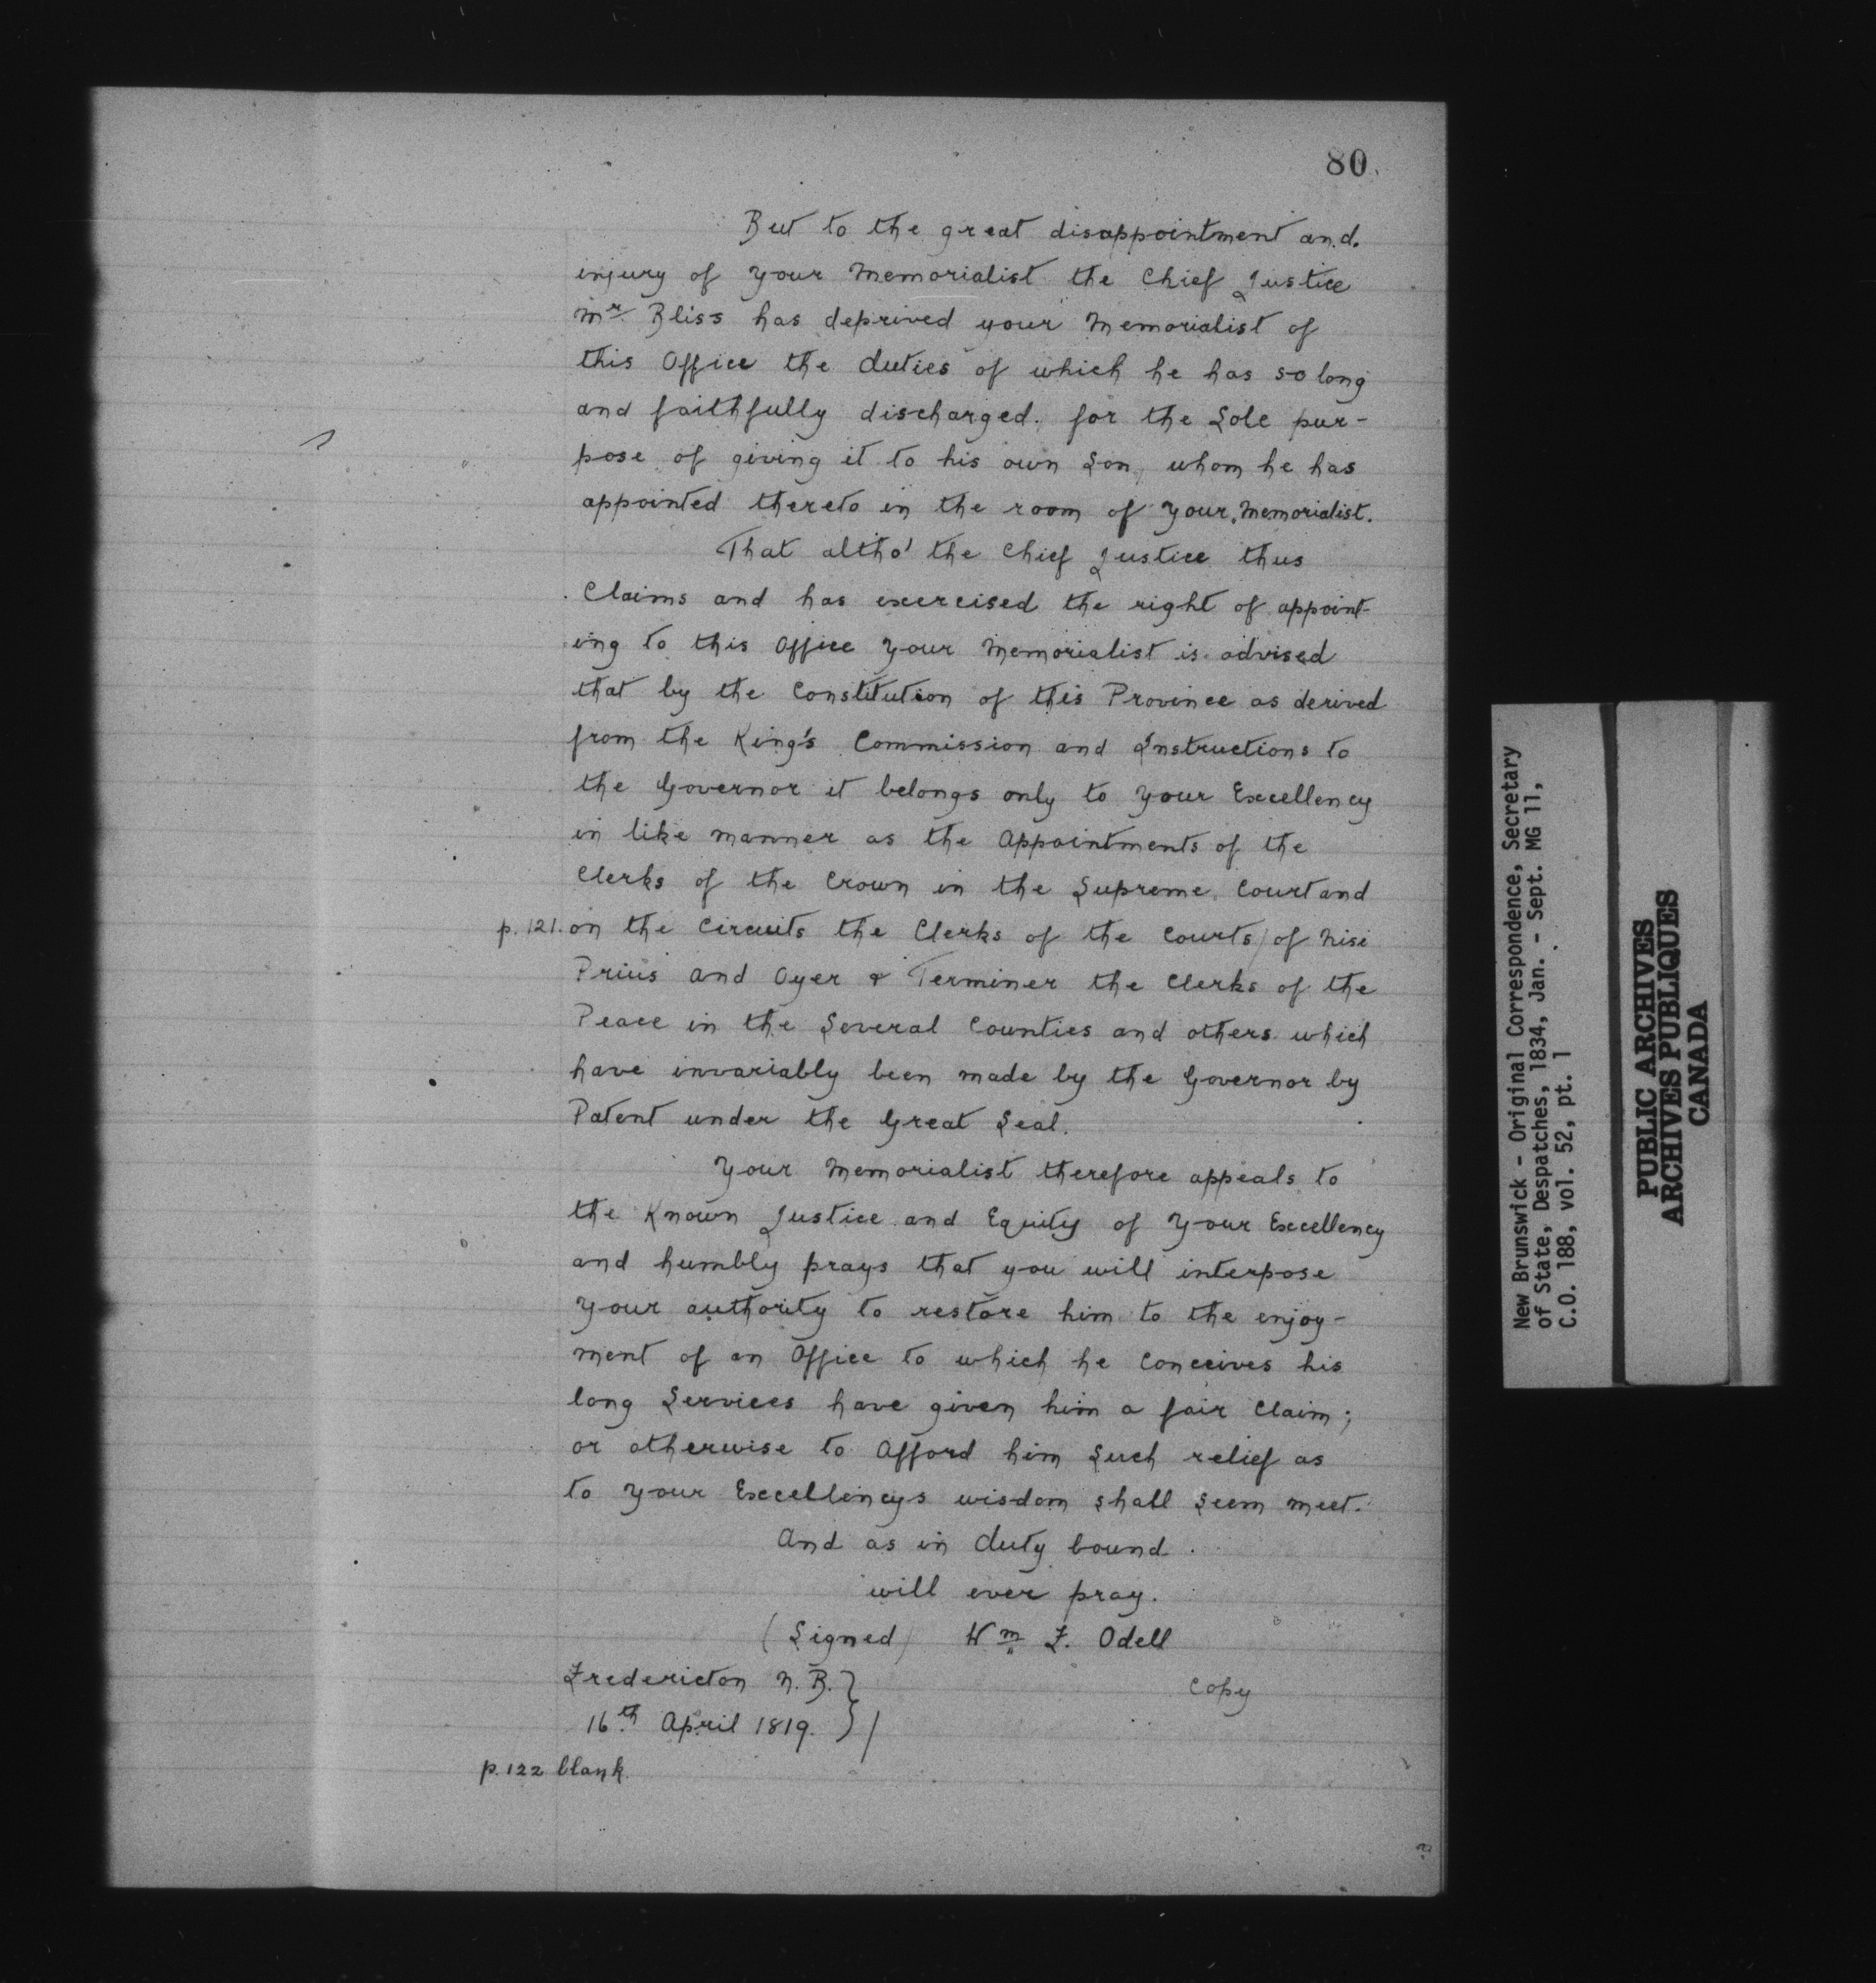 80.
But to the great disappointment and.
injury of your Memorialist the Chief Justice
Mr. Bliss has deprived your Memorialist of
this Office the duties of which he has so long
and faithfully discharged. for the Sole pur-
pose of giving it to his own Son, whom he has
appointed thereto in the room of Your Memorialist.
That altho' the Chief Justice thus
Claims and has exercised the right of appoint-
ing to this Office Your Memorialist is advised
that by the Constitution of this Province as derived
from the King's Commission and Instructions to
the Governor it belongs only to Your Excellency
in like manner as the Appointments of the
Clerks of the Crown in the Supreme Court and
p. 121. on the Circuits the Clerks of the Courts / of Nisi
Prius and Oyer & Terminer the Clerks of the
Peace in the Several Counties and others which
have invariably been made by the Governor by
Patent under the Great Seal.
Your Memorialist therefore appeals to
the Known Justice and Equity of Your Excellency
and humbly prays that you will interpose
Your authority to restore him to the enjoy-
ment of an Office to which he Conceives his
long Services have given him a fair Claim;
or otherwise to Afford him Such relief as
to Your Excellencys wisdom shall Seem meet.
And as in duty bound.
will ever pray.
(Signed) Wm F. Odell
Fredericton N.B. }
Copy
16th April 1819. } /
p. 122 blank.
New Brunswick - Original Correspondence, Secretary
of State, Despatches, 1834, Jan. - Sept. MG 11,
C.O. 188, vol. 52, pt. 1
PUBLIC ARCHIVES
ARCHIVES PUBLIQUES
CANADA